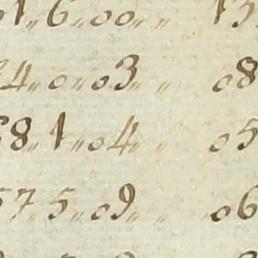 1„ 6„ 00„ „ 13
4„ 0„ 03„ „ 08
8„ 1„ 04„ „ 05
57„ 5„ 09„ „ 06